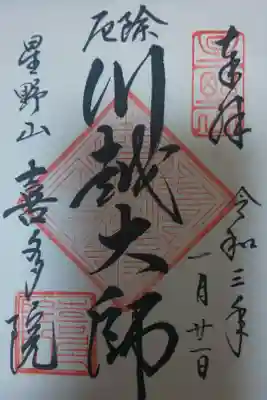 奉拝
令和三年
一月廿一日
厄除
川越大師
星野山
喜多院